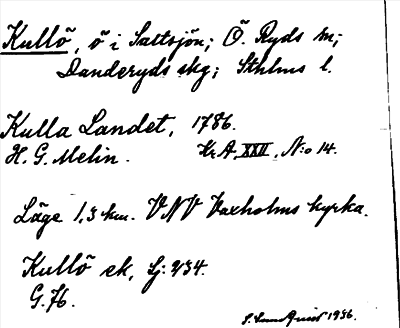 Kullö, ö i Saltsjön; Ö. Ryds sn;
Danderyds skg; Sthlms l.
Kulla Landet, 1786.
H. G. Melin. Kr A, XXII, N:o 14.
Läge 1,3 km. VNV Vaxholms kyrka.
Kullö ek, Lj: 234.
G. 76.
S. Lundqvist 1936.